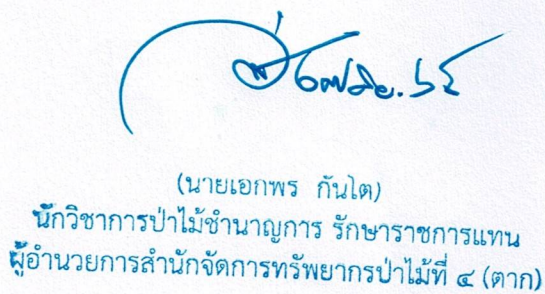 (นายเอกพร กันไต)
นักวิชาการป่าไม้ชำนาญการ รักษาราชการแทน
ผู้อำนวยการสำนักจัดการทรัพยากรป่าไม้ที่ ๔ (ตาก)